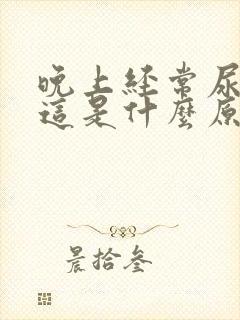 晚上經常尿
這是什麼原
晨拾叁